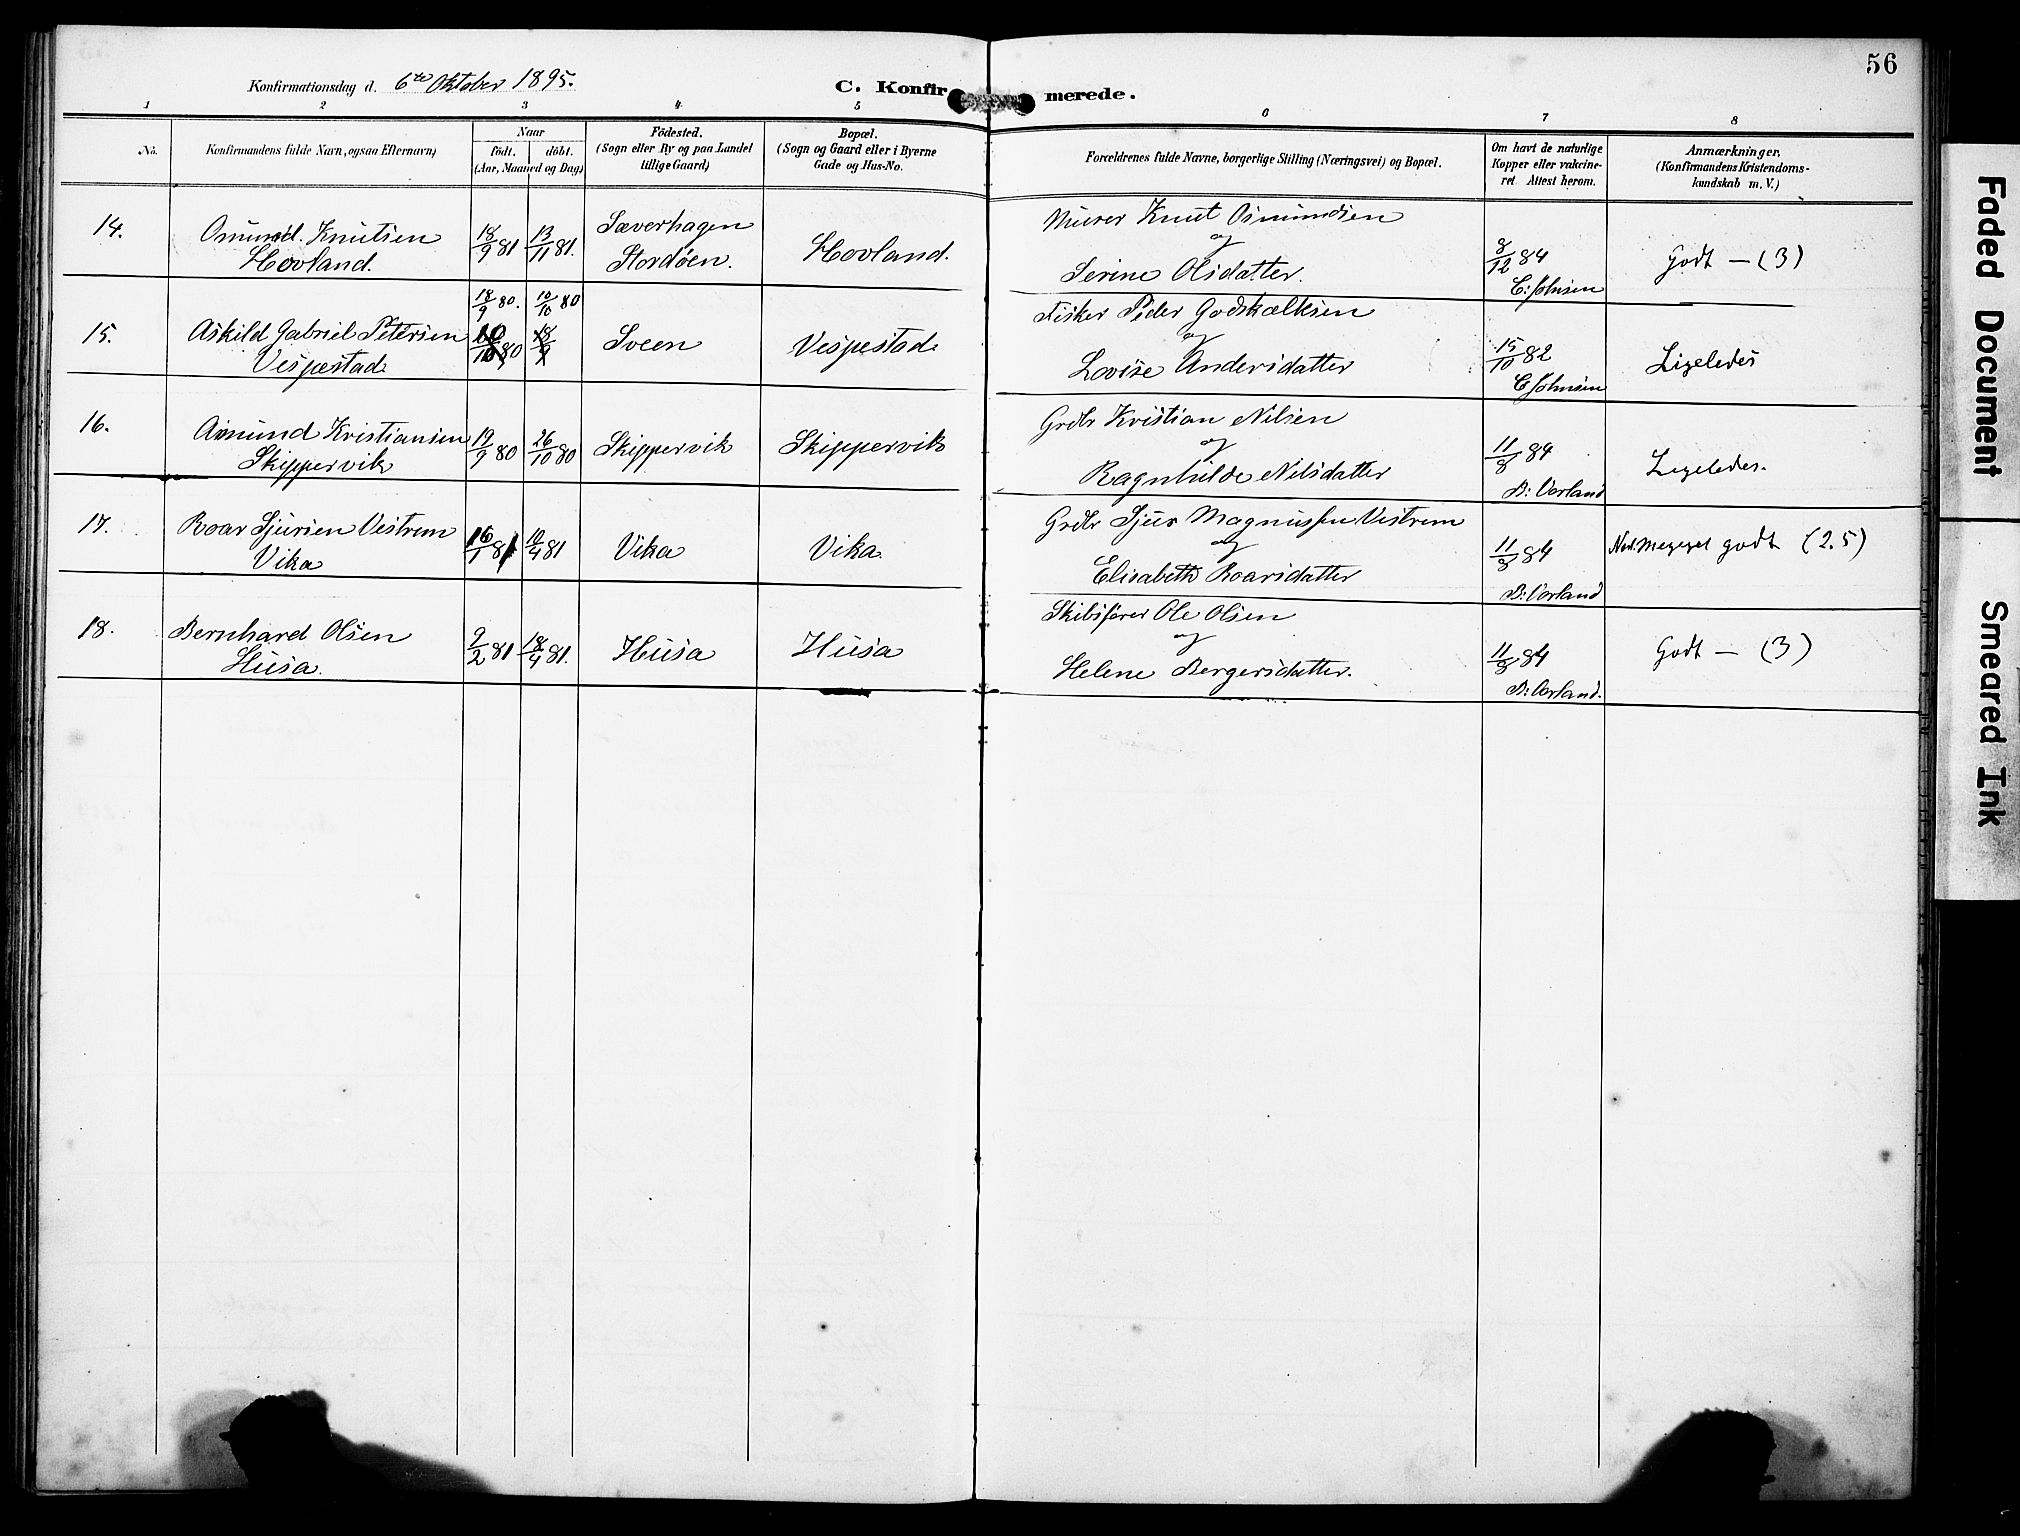 56
Konfirmationsdag d. 6te Oktober 1895.
C. Konfirmerede.
1 2 3 4 5 6 7 8
No.
Konfirmandens fulde Navn, ogsaa Efternavn)
Naar
födt. döbt.
(Aar, Maaned og Dag)
Födested.
(Sogn eller By og paa Landet
tillige Gaard)
Bopæl.
(Sogn og Gaard eller i Byerne
Gade og Hus-No.
Forældrenes fulde Navne, borgerlige Stilling (Næringsvei) og Bopæl.
Om havt de naturlige
Kopper eller vakcine-
ret Attest herom.
Anmærkninger,
(Konfirmandens Kristendoms-
kundskab m. V.)
14.
Omund Knutsen
Hovland.
18/9 81
13/11 81.
Sæverhagen
Stordöen.
Hovland.
Murer Knut Osmundsen
og
Serine Olsdatter.
8/12 84
C: Johnsen
Godt — (3)
15.
Askild Gabriel Petersen
Vespestad
18/9 80.
10/10 80
Sveen
Vespestad
Fisker Peder Godskalksen
og
Lovise Andersdatter
15/10 82
C Johnsen
Ligeledes
16.
Amund Kristiansen
Skippervik
19/9 80
26/10 80
Skippervik
Skippervik
Grdbr Kristian Nilsen
og
Ragnhilde Nilsdatter
11/8 84
B: Vorland
Ligeledes.
17.
Roar Sjursen Vestrem
Vika
16/1 81
10/4 81
Vika
Vika
Grdbr Sjur Magnussen Vestrem
og
Elisabeth Roarsdatter
11/8 84
B: Vorland
Meget godt (2.5)
18.
Bernhard Olsen
Husa.
9/2 81
18/4 81.
Husa
Husa
Skibsfører Ole Olsen
og
Helene Bergersdatter.
11/8 84
B: Vorland.
Godt — (3)
Faded Document
Smeared Ink